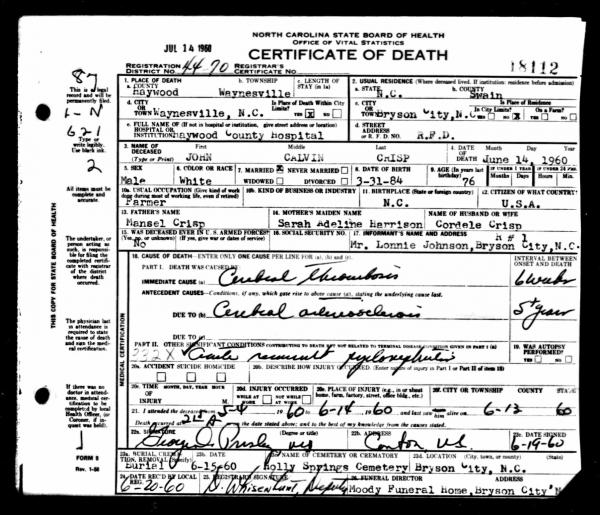 NORTH CAROLINA STATE BOARD OF HEALTH
OFFICE OF VITAL STATISTICS
JUL 14 1960
CERTIFICATE OF DEATH
REGISTRATION DISTRICT No. 44-70 REGISTRAR'S CERTIFICATE No. 18112
1. PLACE OF DEATH
a. COUNTY Haywood
b. TOWNSHIP Waynesville
c. LENGTH OF STAY (in 1a)
2. USUAL RESIDENCE (Where deceased lived. If institution: residence before admission)
a. STATE N.C.
b. COUNTY Swain
d. CITY OR TOWN Waynesville, N.C.
Is Place of Death Within City Limits? YES X NO
c. CITY OR TOWN Bryson City, N.C.
Is Place of Residence In City Limits? On a Farm?
e. FULL NAME OF (If not in hospital or institution, give street address or location) HOSPITAL OR INSTITUTION Haywood County Hospital
d. STREET ADDRESS OR R. F. D. NO. R.F.D.
3. NAME OF DECEASED (Type or Print)
First Middle Last
JOHN CALVIN CRISP
4. DATE OF DEATH Month Day Year
June 14, 1960
5. SEX Male
6. COLOR OR RACE White
7. MARRIED X NEVER MARRIED WIDOWED DIVORCED
8. DATE OF BIRTH 3-31-84
9. AGE (In years last birthday) 76
IF UNDER 1 YEAR Months Days
IF UNDER 24 HRS. Hours Min.
10a. USUAL OCCUPATION (Give kind of work done during most of working life, even if retired) Farmer
10b. KIND OF BUSINESS OR INDUSTRY
11. BIRTHPLACE (State or foreign country) N.C.
12. CITIZEN OF WHAT COUNTRY? U.S.A.
13. FATHER'S NAME Mansel Crisp
14. MOTHER'S MAIDEN NAME Sarah Adeline Harrison
NAME OF HUSBAND OR WIFE Cordele Crisp
15. WAS DECEASED EVER IN U. S. ARMED FORCES? (Yes, no, or unknown) (If yes, give war or dates of service) No
16. SOCIAL SECURITY NO.
17. INFORMANT'S NAME AND ADDRESS R # 1
Mr. Lonnie Johnson, Bryson City, N.C.
18. CAUSE OF DEATH—ENTER ONLY ONE CAUSE PER LINE FOR (a), (b), and (c).
INTERVAL BETWEEN ONSET AND DEATH
PART I. DEATH WAS CAUSED BY:
IMMEDIATE CAUSE (a) Cerebral thrombosis 6 weeks
ANTECEDENT CAUSES—Conditions, if any, which gave rise to above cause (a), stating the underlying cause last.
DUE TO (b) Cerebral arteriosclerosis 5+ years
DUE TO (c)
PART II. OTHER SIGNIFICANT CONDITIONS CONTRIBUTING TO DEATH BUT NOT RELATED TO TERMINAL DISEASE CONDITION GIVEN IN PART I (a)
332X pyelonephritis
19. WAS AUTOPSY PERFORMED? YES NO
20a. ACCIDENT SUICIDE HOMICIDE
20b. DESCRIBE HOW INJURY OCCURRED. (Enter nature of injury in Part I or Part II of item 18)
20c. TIME OF INJURY MONTH, DAY, YEAR HOUR M.
20d. INJURY OCCURRED WHILE AT WORK NOT WHILE AT WORK
20e. PLACE OF INJURY (e.g., in or about home, farm, factory, street, office bldg., etc.)
20f. CITY OR TOWNSHIP COUNTY STATE
21. I attended the deceased from 5-4 1960 to 6-14 1960 and last saw him alive on 6-13 60
Death occurred at m on the date stated above; and to the best of my knowledge from the causes stated.
22a. SIGNATURE (Degree or title)
22b. ADDRESS Canton, N.C.
22c. DATE SIGNED 6-19-60
23a. BURIAL, CREMATION, REMOVAL (Specify) Burial
23b. DATE 6-15-60
23c. NAME OF CEMETERY OR CREMATORY Holly Springs Cemetery
23d. LOCATION (City, town, or county) (State) Bryson City, N.C.
24. DATE REC'D BY LOCAL REG. 6-20-60
25. REGISTRAR'S SIGNATURE S. Whisenhunt, Deputy
26. FUNERAL DIRECTOR ADDRESS Moody Funeral Home, Bryson City
87
This is a legal record and will be permanently filed.
1-N
621
Type or write legibly. Use black ink.
2
All items must be complete and accurate.
The undertaker, or person acting as such, is responsible for filing the completed certificate with registrar of the district where death occurred.
The physician last in attendance is required to state the cause of death and sign the medical certification.
If there was no doctor in attendance, medical certification to be completed by local Health Officer, (or Coroner, if inquest was held.)
FORM 8
Rev. 1-56
THIS COPY FOR STATE BOARD OF HEALTH
MEDICAL CERTIFICATION